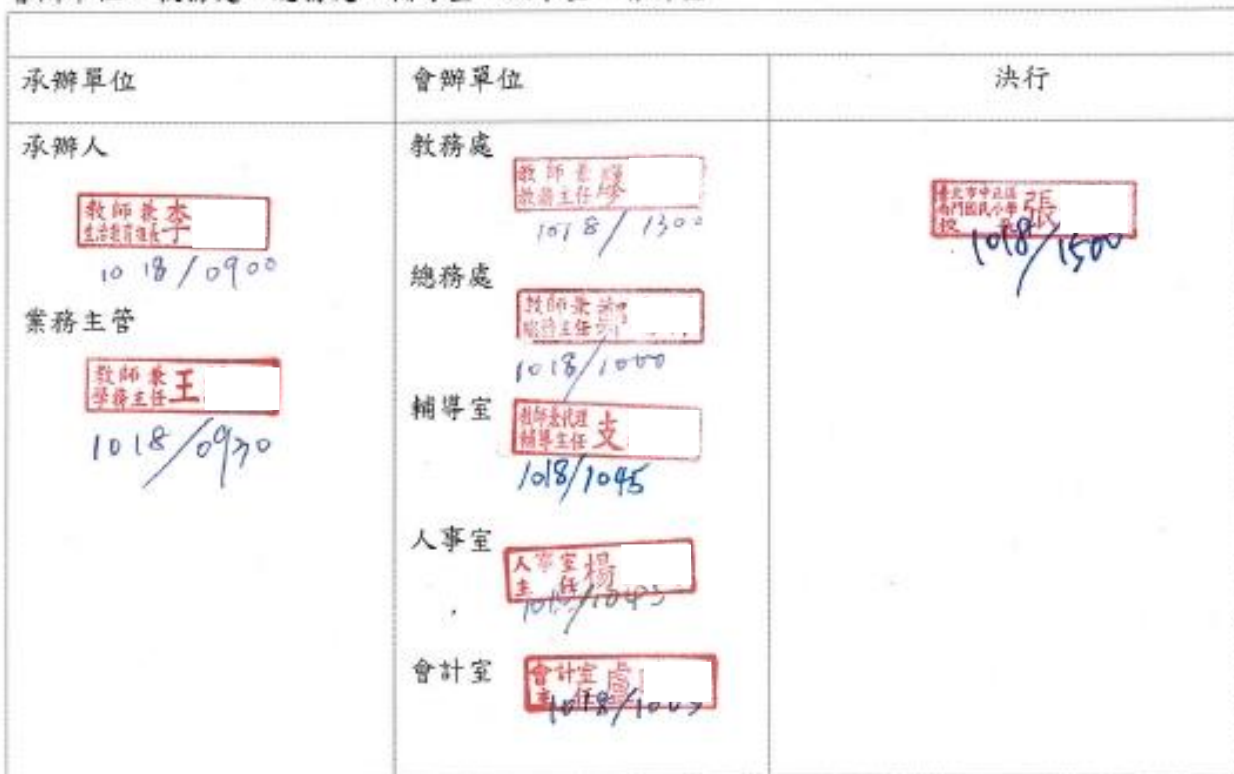 承辦單位
會辦單位
決行
承辦人
教師兼
生活教育組長
李
1018/0900
業務主管
教師兼
學務主任
王
1018/0930
教務處
教師兼
教務主任
1018/1300
總務處
教師兼
總務主任
1018/1000
輔導室
教師兼代理
輔導主任
支
1018/1045
人事室
人事室
主任
楊
會計室
會計室
主任
盧
臺北市中正區
南門國民小學
校長
張
1018/1500